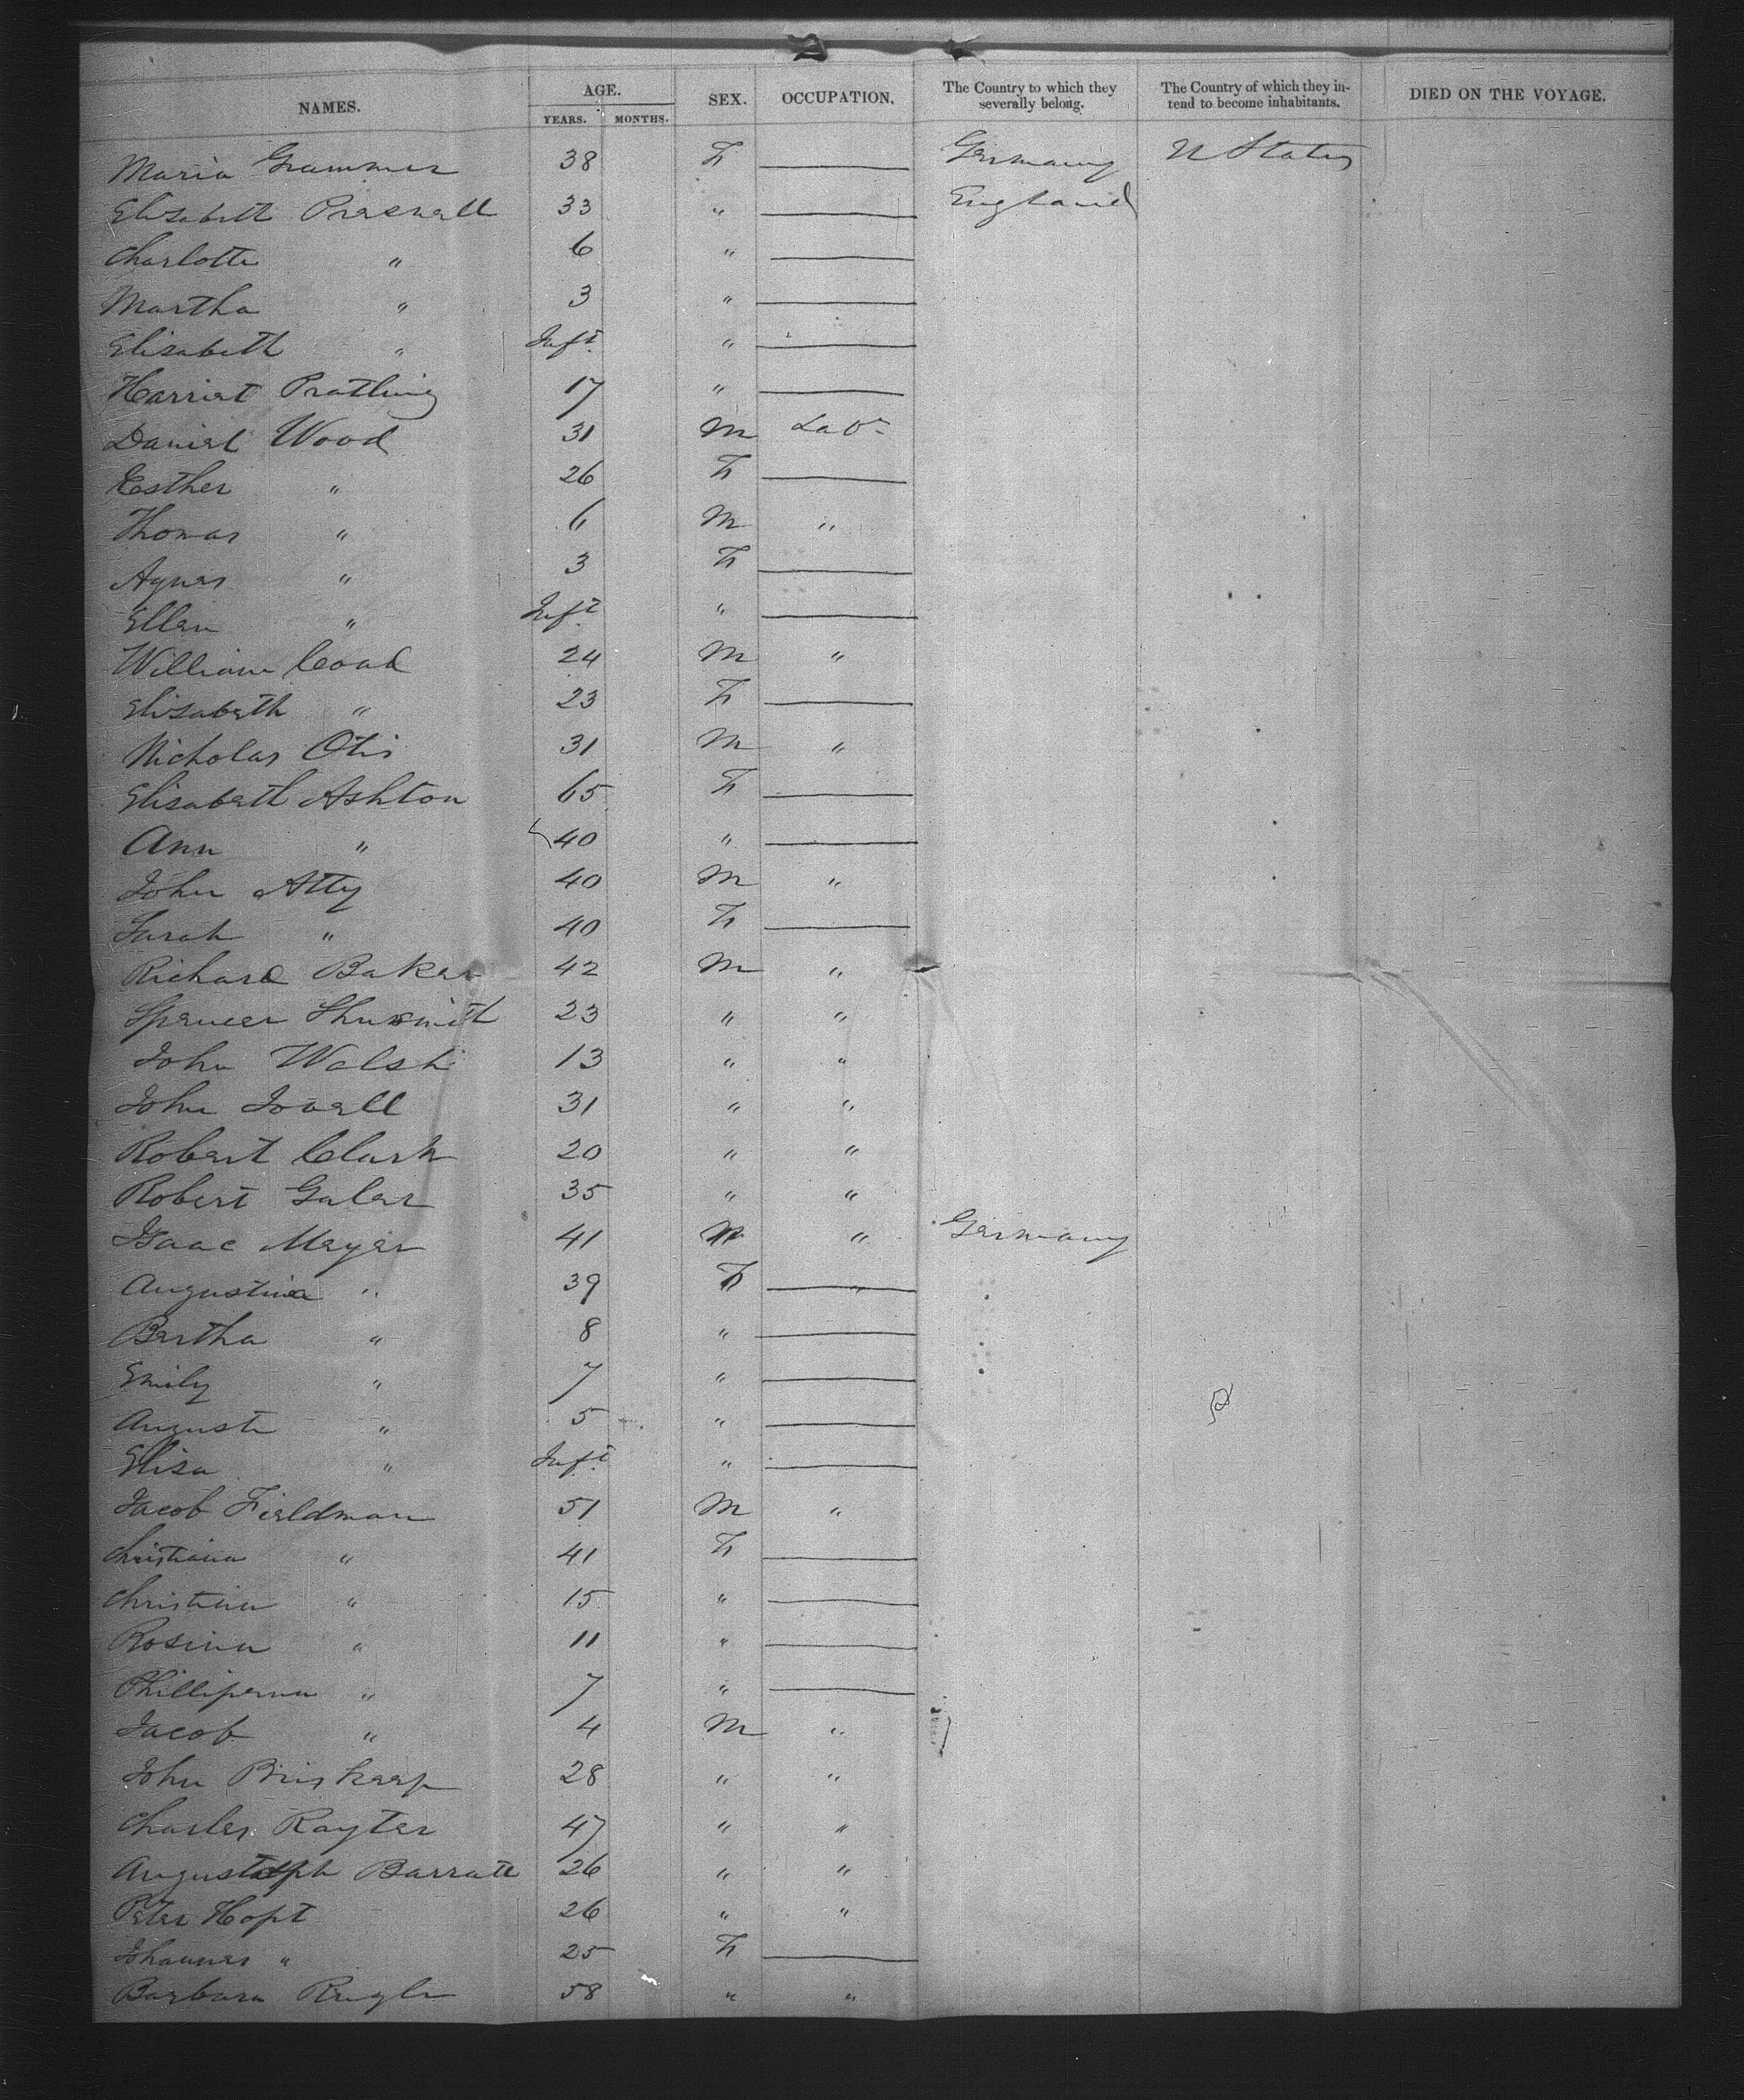 NAMES. AGE. SEX. OCCUPATION. The Country to which they severally belong. The Country of which they intend to become inhabitants. DIED ON THE VOYAGE.
YEARS. MONTHS.
Maria Grammer 38 F Germany U States
Elisabeth 33 " England
Charlotte " 6 "
Martha " 3 "
Elisabeth " Inft "
Harriet Pratling 17 "
Daniel Wood 31 M Labr
Esther " 26 F
Thomas " 6 M "
Agnes " 3 F
Ellen " Inft "
William Coad 24 M "
Elisabeth " 23 F
Nicholas Otis 31 M "
Elisabeth Ashton 65 F
Ann " 40 "
John Atty 40 M "
Sarah " 40 F
Richard Baker 42 M "
Spencer 23 " "
John Walsh 13 " "
John 31 " "
Robert Clark 20 " "
Robert Galer 35 " "
Isaac Meyer 41 M " Germany
Augustina " 39 F
Bertha " 8 "
Emily " 7 "
Auguste " 5 "
Elisa " Inft "
Jacob Fieldman 51 M "
Christiana " 41 F
Christian " 15 "
Rosina " 11 "
Phillipena " 7 "
Jacob " 4 M "
John 28 " "
Charles Rayter 47 " "
Barratt 26 " "
Peter Hopt 26 " "
Johannes " 25 F
Barbara 58 " "